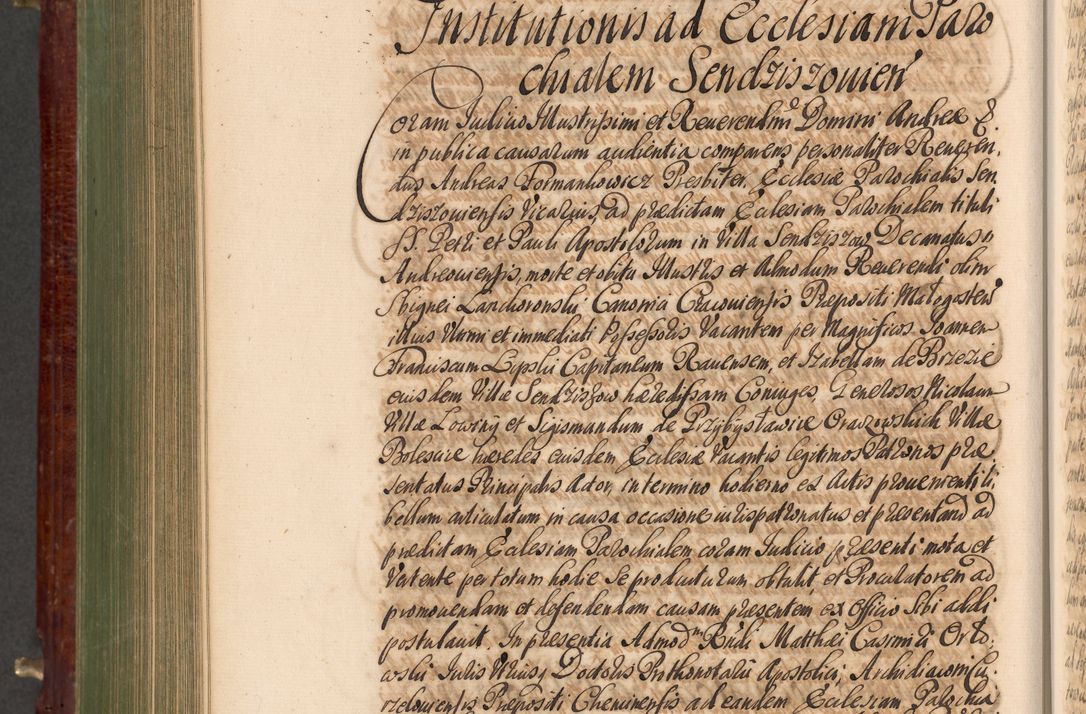 Institutionis ad Ecclesiam Paro
chialem Sendziszouien̄
Coram Iudicio Illustrissimi et Reuerendm̄i Domini Andreæ &.
in publica causarum audientia comparens personaliter Reueren,
dus Andreas Formankowicz Presbiter, Ecclesiæ Parochialis Sen,
dziszouiensis Vicarius, ad prædictam Ecclesiam Parochialem tituli
SS. Petri et Pauli Apostolorum in Villa Sendziszow Decanatus
Andreouiensis, morte et obitu Illustris et Admodum Reuerendi olim
Sbignei Lanckoronski Canonici Cracouiensis Præpositi Małogosten̄
illius Vltimi et immediati Possessoris Vacantem per Magnificos Ioannem
Franciscum Lipski Capitaneum Rauensem, et Izabellam de Brzezie
eiusdem Villæ Sendziszow hæredissam Coniuges, Generosos Nicolaum
Villæ Lowiny et Sigismundum de Przybysławice Oraczowskich Villæ
Bolescice hæredes eiusdem Ecclesiæ Vacantis legitimos Patronos præ
sentatus Principalis Actor, in termino hodierno ex Actis proueniente li,
bellum articulatum in causa occasione iurispatronatus et præsentandi ad
prædictam Ecclesiam Parochialem coram Iudicio præsenti mota et
Vertente per totum hodie se producturum obtulit, et Procuratorem ad
promouendam et defendendam causam præsentem ex Officio sibi addi
postulauit. In præsentia Admodm Rndi Matthæi Casimiri Orło,
wski Iuris Vtriusq Doctoris Prothonotarii Apostolici, Archidiaconi Cu,
rzelouiensis Præpositi Cheminensis ad eandem Ecclesiam Parochia